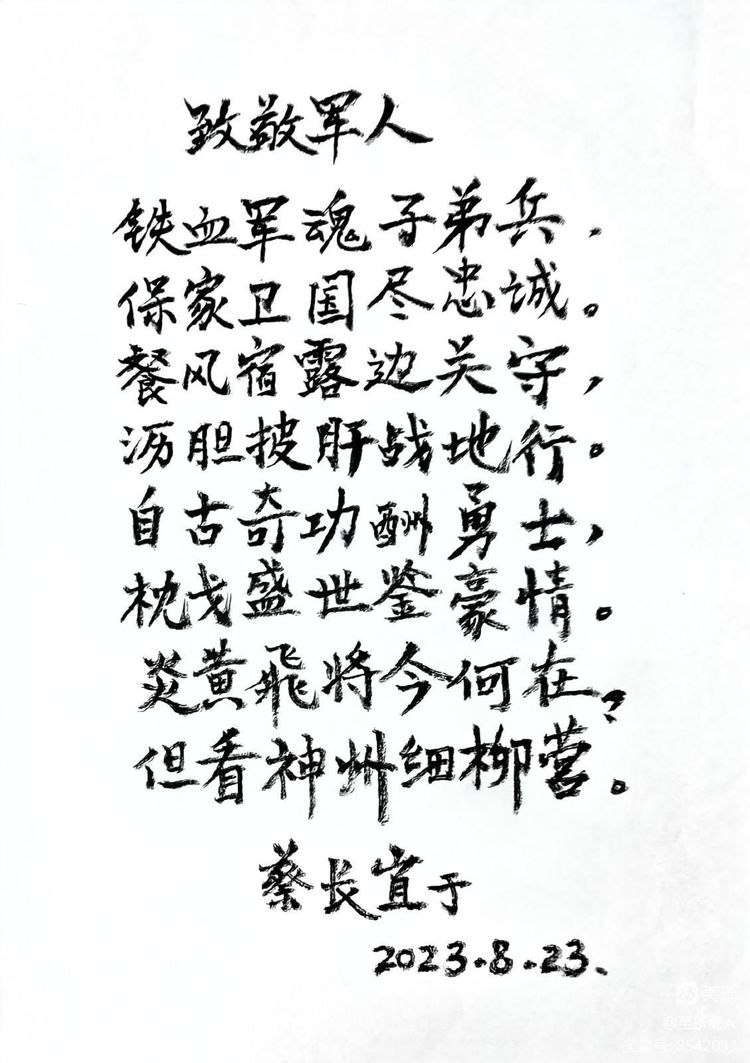 致敬军人
铁血军魂子弟兵.
保家卫国尽忠诚。
餐风宿露边关守,
沥胆披肝战地行。
自古奇功酬勇士,
枕戈盛世鉴豪情。
炎黄飛将今何在?
但看神州细柳营。
蔡长宜于
2023.8.23.
美篇
美篇号:8542033